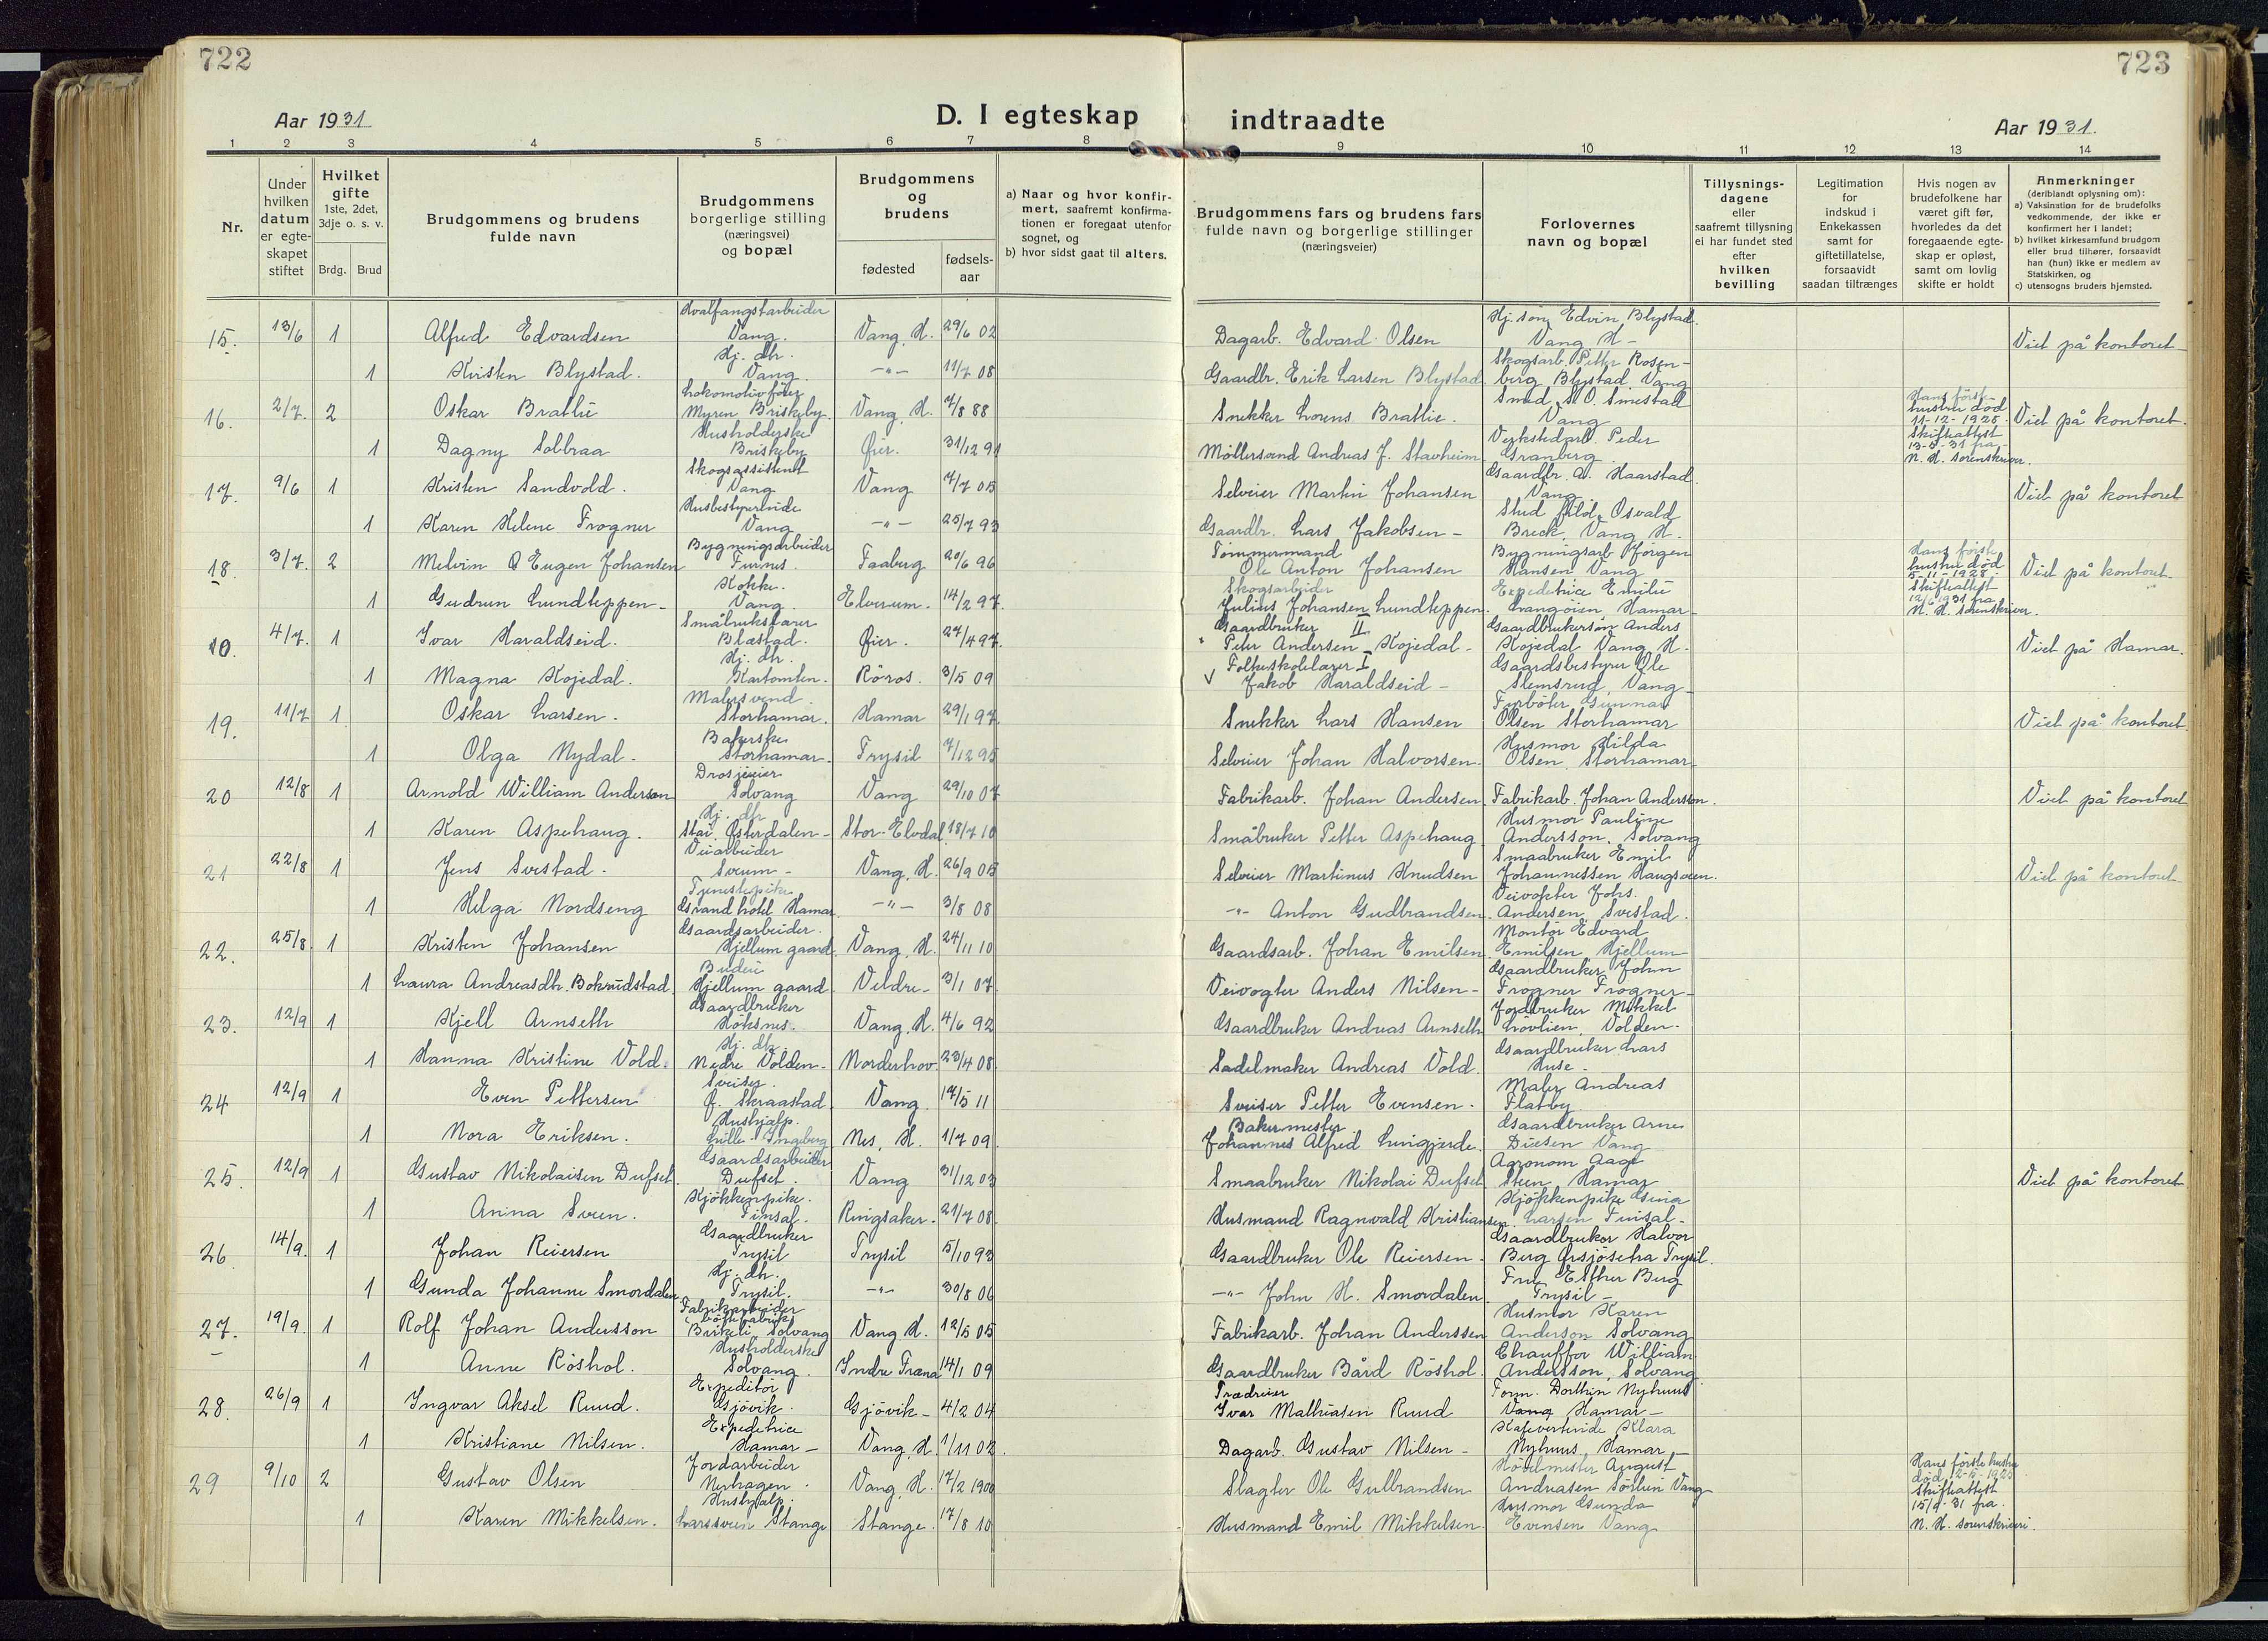 722
723
Aar 1931
D. I egteskap indtraadte
Aar 1931.
1 2 3 4 5 6 7 8 9 10 11 12 13 14
Nr.
Under hvilken datum er egte-skapet stiftet
Hvilket gifte 1ste, 2det, 3dje o. s. v.
Brdg. Brud
Brudgommens og brudens fulde navn
Brudgommens borgerlige stilling (næringsvei) og bopæl
Brudgommens og brudens
fødested
fødsels-aar
a) Naar og hvor konfir-mert, saafremt konfirma-tionen er foregaat utenfor sognet, og
b) hvor sidst gaat til alters.
Brudgommens fars og brudens fars fulde navn og borgerlige stillinger (næringsveier)
Forlovernes navn og bopæl
Tillysnings-dagene eller saafremt tillysning ei har fundet sted efter hvilken bevilling
Legitimation for indskud i Enkekassen samt for giftetillatelse, forsaavidt saadan tiltrænges
Hvis nogen av brudefolkene har været gift før, hvorledes da det foregaaende egte-skap er opløst, samt om lovlig skifte er holdt
Anmerkninger (deriblandt oplysning om):
a) Vaksination for de brudefolks vedkommende, der ikke er konfirmert her i landet;
b) hvilket kirkesamfund brudgom eller brud tilhører, forsaavidt han (hun) ikke er medlem av Statskirken, og
c) utensogns bruders hjemsted.
15. 13/6 1 Alfred Edvardsen Hvalfangstarbeider Vang. Vang, H. 29/6 02 Dagarb. Edvard Olsen Hj. søn Edvin Blystad. Vang H- Viet på kontoret-
1 Kristen Blystad. Hj. dtr. Vang. -"- 11/7 08 Gaardbr. Erik Larsen Blystad Skogsarb. Petter Rosen-berg Blystad, Vang
16. 2/7. 2 Oskar Bratlie Lokomotivfører Myren Briskeby. Vang, H. 7/8 88 Snekker Lorens Bratlie. Smed M. O. Smestad Vang Hans første hustru død 11-12-1925. Skifteattest 13-5-31 fra N. H. sorenskriver. Viet på kontoret.
1 Dagny Solbraa Husholderske Briskeby Øier. 31/12 91 Møllersvend Andreas J. Stavheim Verkstedarb. Peder Granberg
17. 9/6 1 Kristen Sandvold. Skogsassistent Vang Vang 7/7 05 Selveier Martin Johansen Gaardbr. A. Haarstad. Vang Viet på kontoret
1 Karen Helene Frogner Husbestyrerinde Vang -"- 25/7 93 Gaardbr. Lars Jakobsen - Stud. Osvald Breck, Vang H.
18. 3/7. 2 Melvin O Eugen Johansen Bygningsarbeider Furnes. Faaberg 20/6 96 Tømmermand Ole Anton Johansen Bygningsarb Jørgen Hansen Vang Hans første hustru død 5-11-1928. Skifteattest 12/6 1931 fra N. H. Sorenskriver. Viet på kontoret-
1 Gudrun Lundteppen- Kokke. Vang. Elverum. 14/2 97. Skogsarbeider Julius Johansen Lundteppen. Expeditrice Emilie Langøien Hamar-
10. 4/7. 1 Ivar Haraldseid. Småbrukslærer Blæstad. Øier. 27/4 97. Gaardbruker II Peter Andersen Kojedal- Gaardbrukersøn Anders Kojedal Vang H. Viet på Hamar.
1 Magna Kojedal. Hj. dtr. Kartomten. Røros. 3/5 09 Folkeskolelærer I Jakob Haraldseid- Gaardsbestyrer Ole Slemsrud, Vang-
19. 11/7 1 Oskar Larsen. Malersvend. Storhamar. Hamar 29/1 97. Snekker Lars Hansen Fyrbøter Gunnar Olsen Storhamar Viet på kontoret.
1 Olga Nydal. Bakerske Storhamar. Trysil 7/12 95 Selveier Johan Halvorsen. Husmor Hilda Olsen, Storhamar-
20 12/8 1 Arnold William Anderson Drosjeeier Solvang Vang 29/10 07 Fabrikarb. Johan Andersen Fabrikarb. Johan Andersson. Viet på kontoret
1 Karen Aspehaug. Hj. dtr Stai, Østerdalen- Stor-Elvdal 18/7 10 Småbruker Petter Aspehaug Husmor Pauline Andersson, Solvang
21 22/8 1 Jens Svestad. Veiarbeider Sveum- Vang, H. 26/9 05 Selveier Martinus Knudsen Smaabruker Emil Johannessen Haugsveen. Viet på kontoret-
1 Helga Nordseng Tjenestepike Grand hotel Hamar. -"- 3/8 08 -"- Anton Gudbrandsen. Veivokter Johs. Andersen Svestad.
22. 25/8. 1 Kristen Johansen Gaardsarbeider. Hjellum gaard. Vang, H. 24/11 10 Gaardsarb. Johan Emilsen. Montør Edvard Emilsen, Hjellum
1 Laura Andreasdtr. Bokrudstad. Budeie Hjellum gaard Veldre- 3/1 07. Veivogter Anders Nilsen- Gaardbruker John Frogner Frogner-
23. 12/9 1 Kjell Arnseth Gaardbruker Høksnes. Vang, H. 4/6 92 Gaardbruker Andreas Arnseth Jordbruker Mikkel Løvlien, Volden.
1 Hanna Kristine Vold. Hj. dtr. Nedre Volden- Norderhov. 23/4 08. Sadelmaker Andreas Vold. Gaardbruker Lars Huse-
24 12/9 1 Even Pettersen Sveiser Ø. Skraastad Vang. 17/5 11 Sveiser Petter Evensen. Maler Andreas Flatby.
1 Nora Eriksen. Hushjælp. Lille-Ingeberg Nes, H. 1/7 09. Bakermester Johannes Alfred Lungjerde. Gaardbruker Arne Diesen Vang
25. 12/9 1 Gustav Nikolaisen Dufset. Gaardsarbeider Dufset. Vang 31/12 03 Smaabruker Nikolai Dufset Agronom Aage Steen, Hamar Viet på kontoret
1 Anna Sveen. Kjøkkenpike. Finsal. Ringsaker. 21/7 08. Husmand Ragnvald Kristiansen. Kjøkkenpike Gina Larsen Finsal-
26 14/9. 1 Johan Reiersen Gaardbruker Trysil Trysil 5/10 93 Gaardbruker Ole Reiersen- Gaardbruker Halvor Berg Ørsjøsetra Trysil.
1 Gunda Johanne Smordalen Hj. dtr. Trysil. -"- 30/8 06 -"- John H. Smordalen Fru Esther Berg Trysil-
27. 19/9. 1 Rolf Johan Andersson Fabrikarbeider Birkeli, Solvang Vang H. 12/5 05 Fabrikarb. Johan Anderssen Husmor Karen Anderson Solvang
1 Anne Röshol. Husholderske Solvang. Indre Fræna 14/1 09 Gaardbruker Bård Röshol. Chauffør William Andersson, Solvang
28. 26/9 1 Ingvar Aksel Ruud. Expeditør Gjøvik. Gjøvik- 4/2 04 Ivar Mathiasen Ruud Form. Dorthin Nyhuus Vang Hamar-
1 Kristiane Nilsen. Expeditrice Hamar- Vang, H. 1/11 02. Dagarb. Gustav Nilsen- Kafevertinde Klara Nyhuus, Hamar-
29 9/10 2 Gustav Olsen Jordarbeider Nerhagen. Vang, H. 17/2 1900 Slagter Ole Gulbrandsen August Andreasen Sørlien Vang Hans første hustru død 12-5-1925 Skifteattest 15/9-31 fra. N. H. sorenskriveri.
1 Karen Mikkelsen. Hushjælp. Larssveen Stange Stange. 17/8 10 Husmand Emil Mikkelsen. Husmor Gunda Evensen Vang